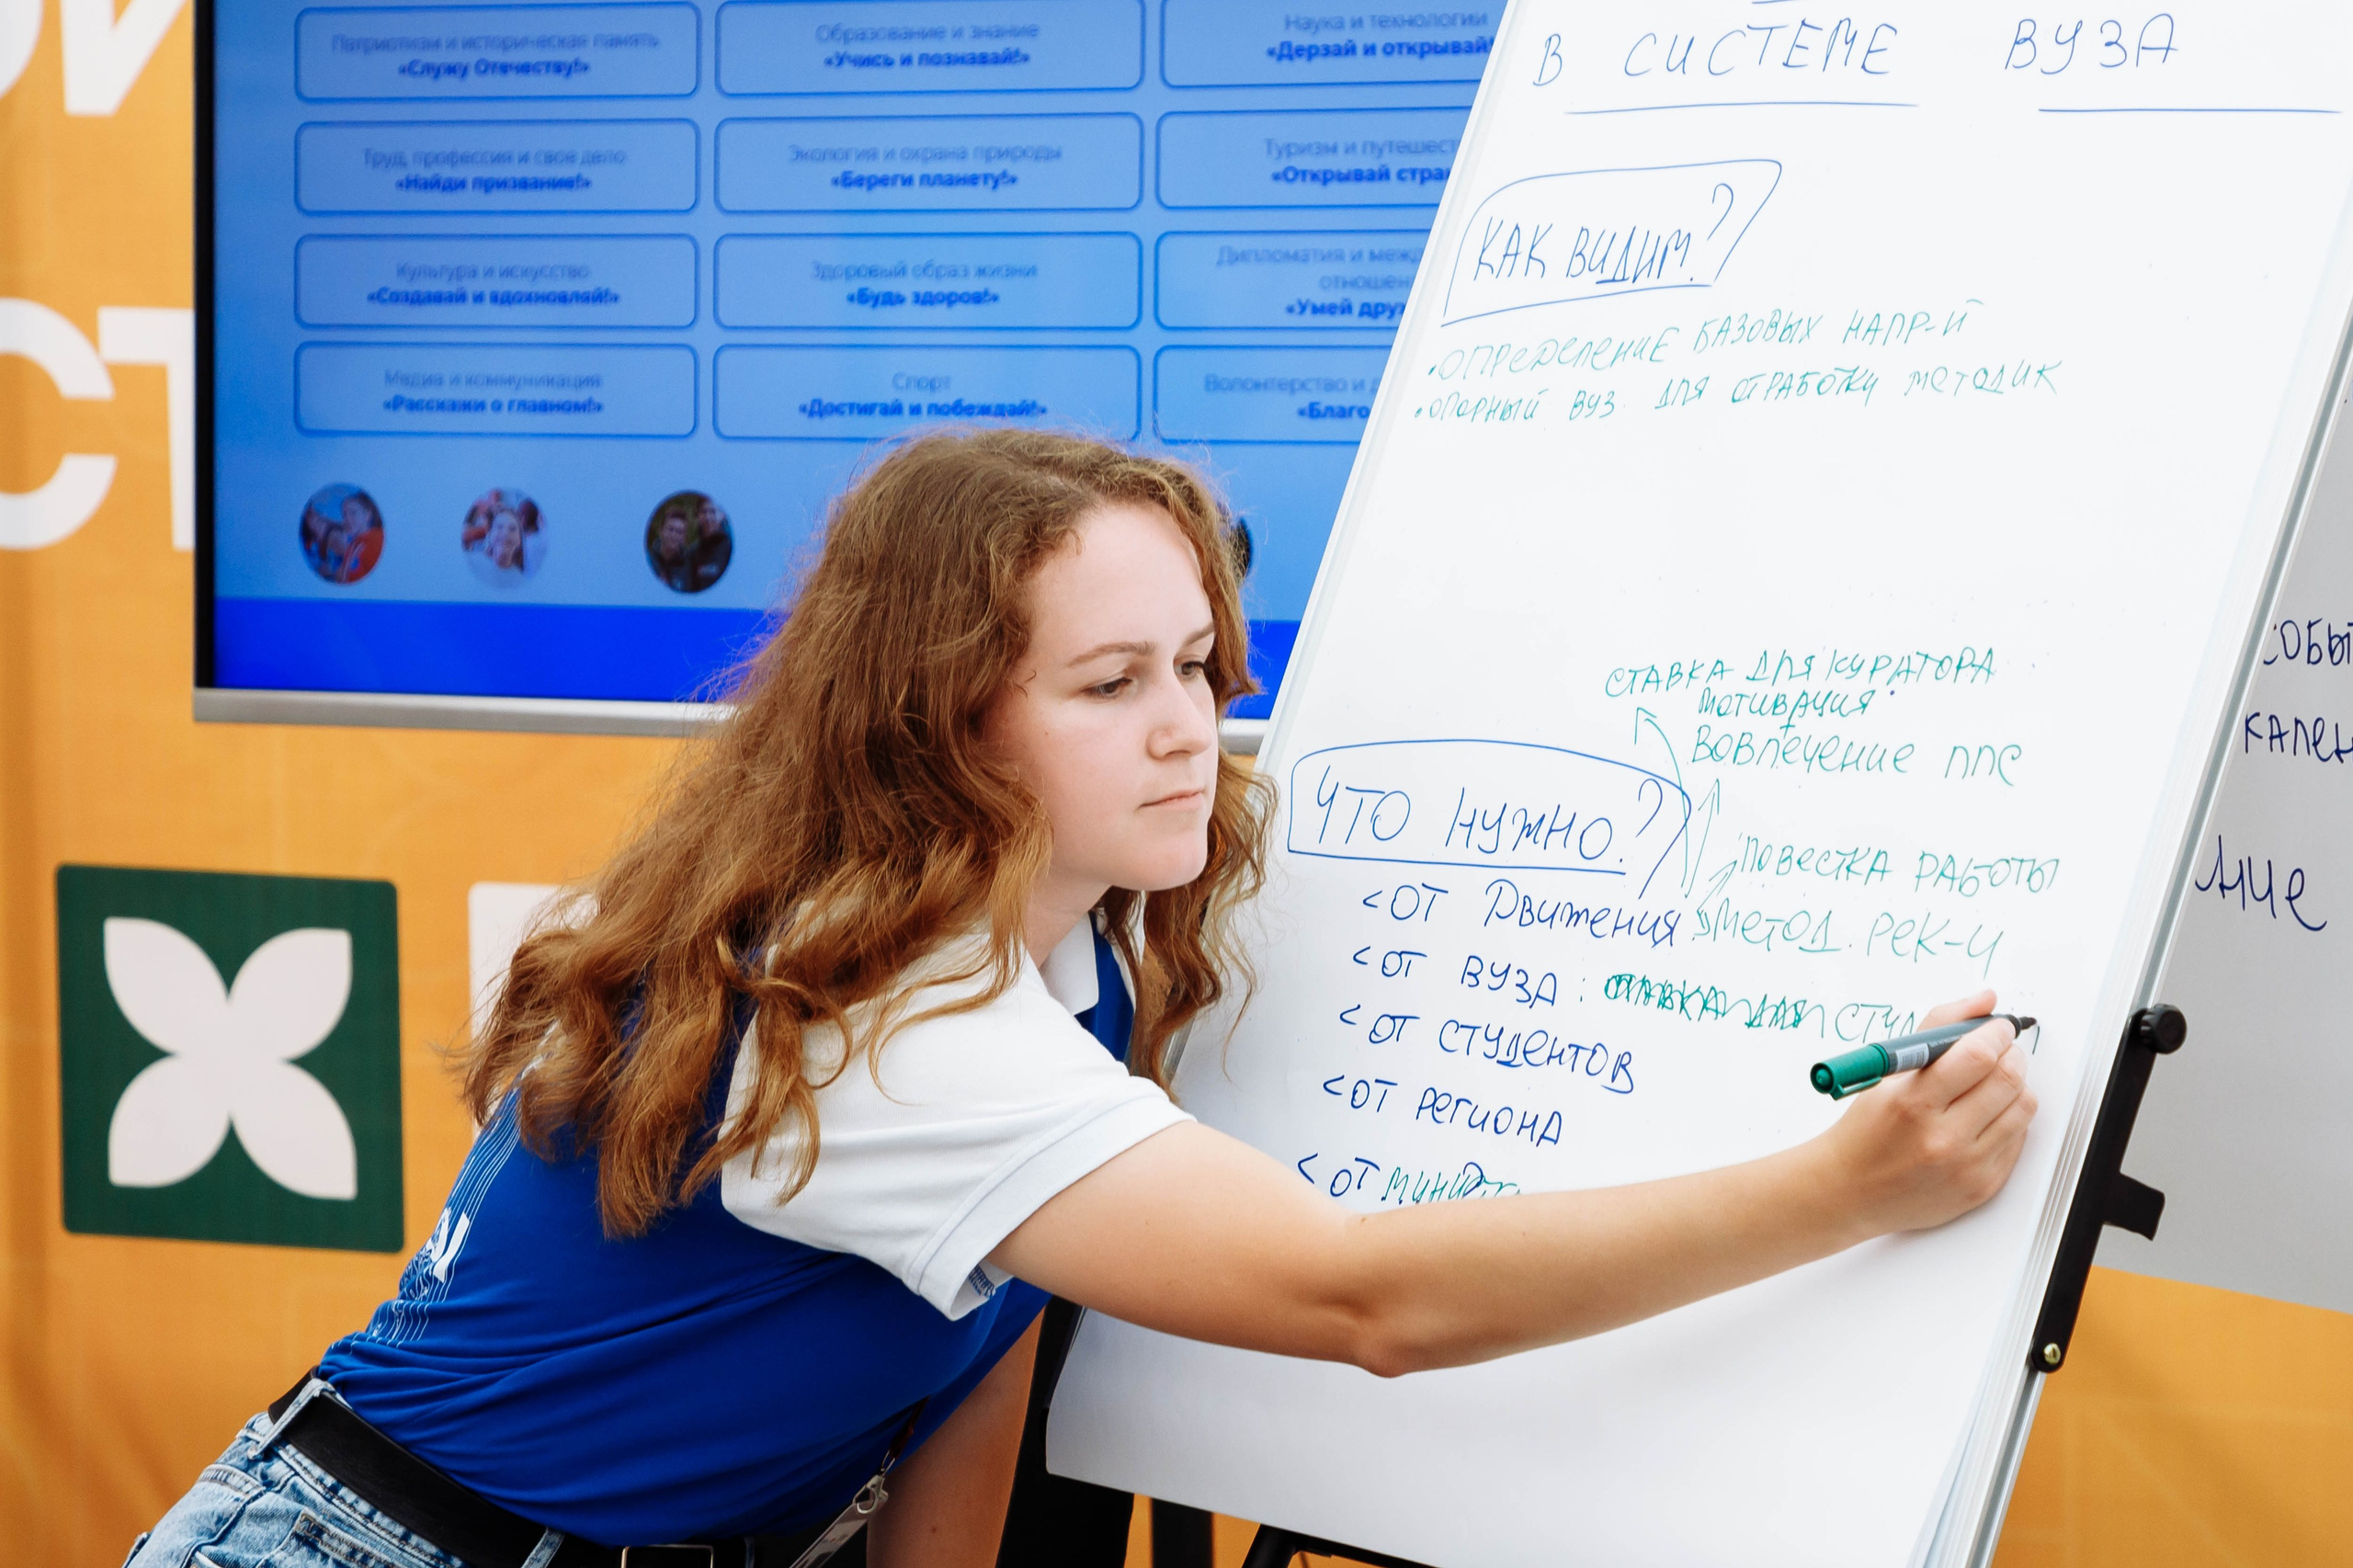 Патриотизм и историческая память
«Служу Отечеству!»
Образование и знание
«Учись и познавай!»
Наука и технологии
«Дерзай и открывай!
Труд, профессия и своё дело
«Найди призвание!»
Экология и охрана природы
«Береги планету!»
Туризм и путешест
«Открывай стра
Культура и искусство
«Создавай и вдохновляй!»
Здоровый образ жизни
«Будь здоров!»
Дипломатия и межд
отношен
«Умей друж
Медиа и коммуникации
«Расскажи о главном!»
Спорт
«Достигай и побеждай!»
Волонтерство и д
«Благо
СТ
В СИСТЕМЕ ВУЗА
КАК ВИДИМ?
• ОПРЕДЕЛЕНИЕ БАЗОВЫХ НАПР-Й
• ОПОРНЫЙ ВУЗ ДЛЯ ОТРАБОТКИ МЕТОДИК
СТАВКА ДЛЯ КУРАТОРА
МОТИВАЦИЯ
ВОВЛЕЧЕНИЕ ППС
ЧТО НУЖНО?
ПОВЕСТКА РАБОТЫ
<ОТ ДВИЖЕНИЯ: МЕТОД. РЕК-И
<ОТ ВУЗА: СТАВКА ДЛЯ СТУ
<ОТ СТУДЕНТОВ
<ОТ РЕГИОНА
<ОТ
СОБЫТ
КАЛЕН
НИЕ